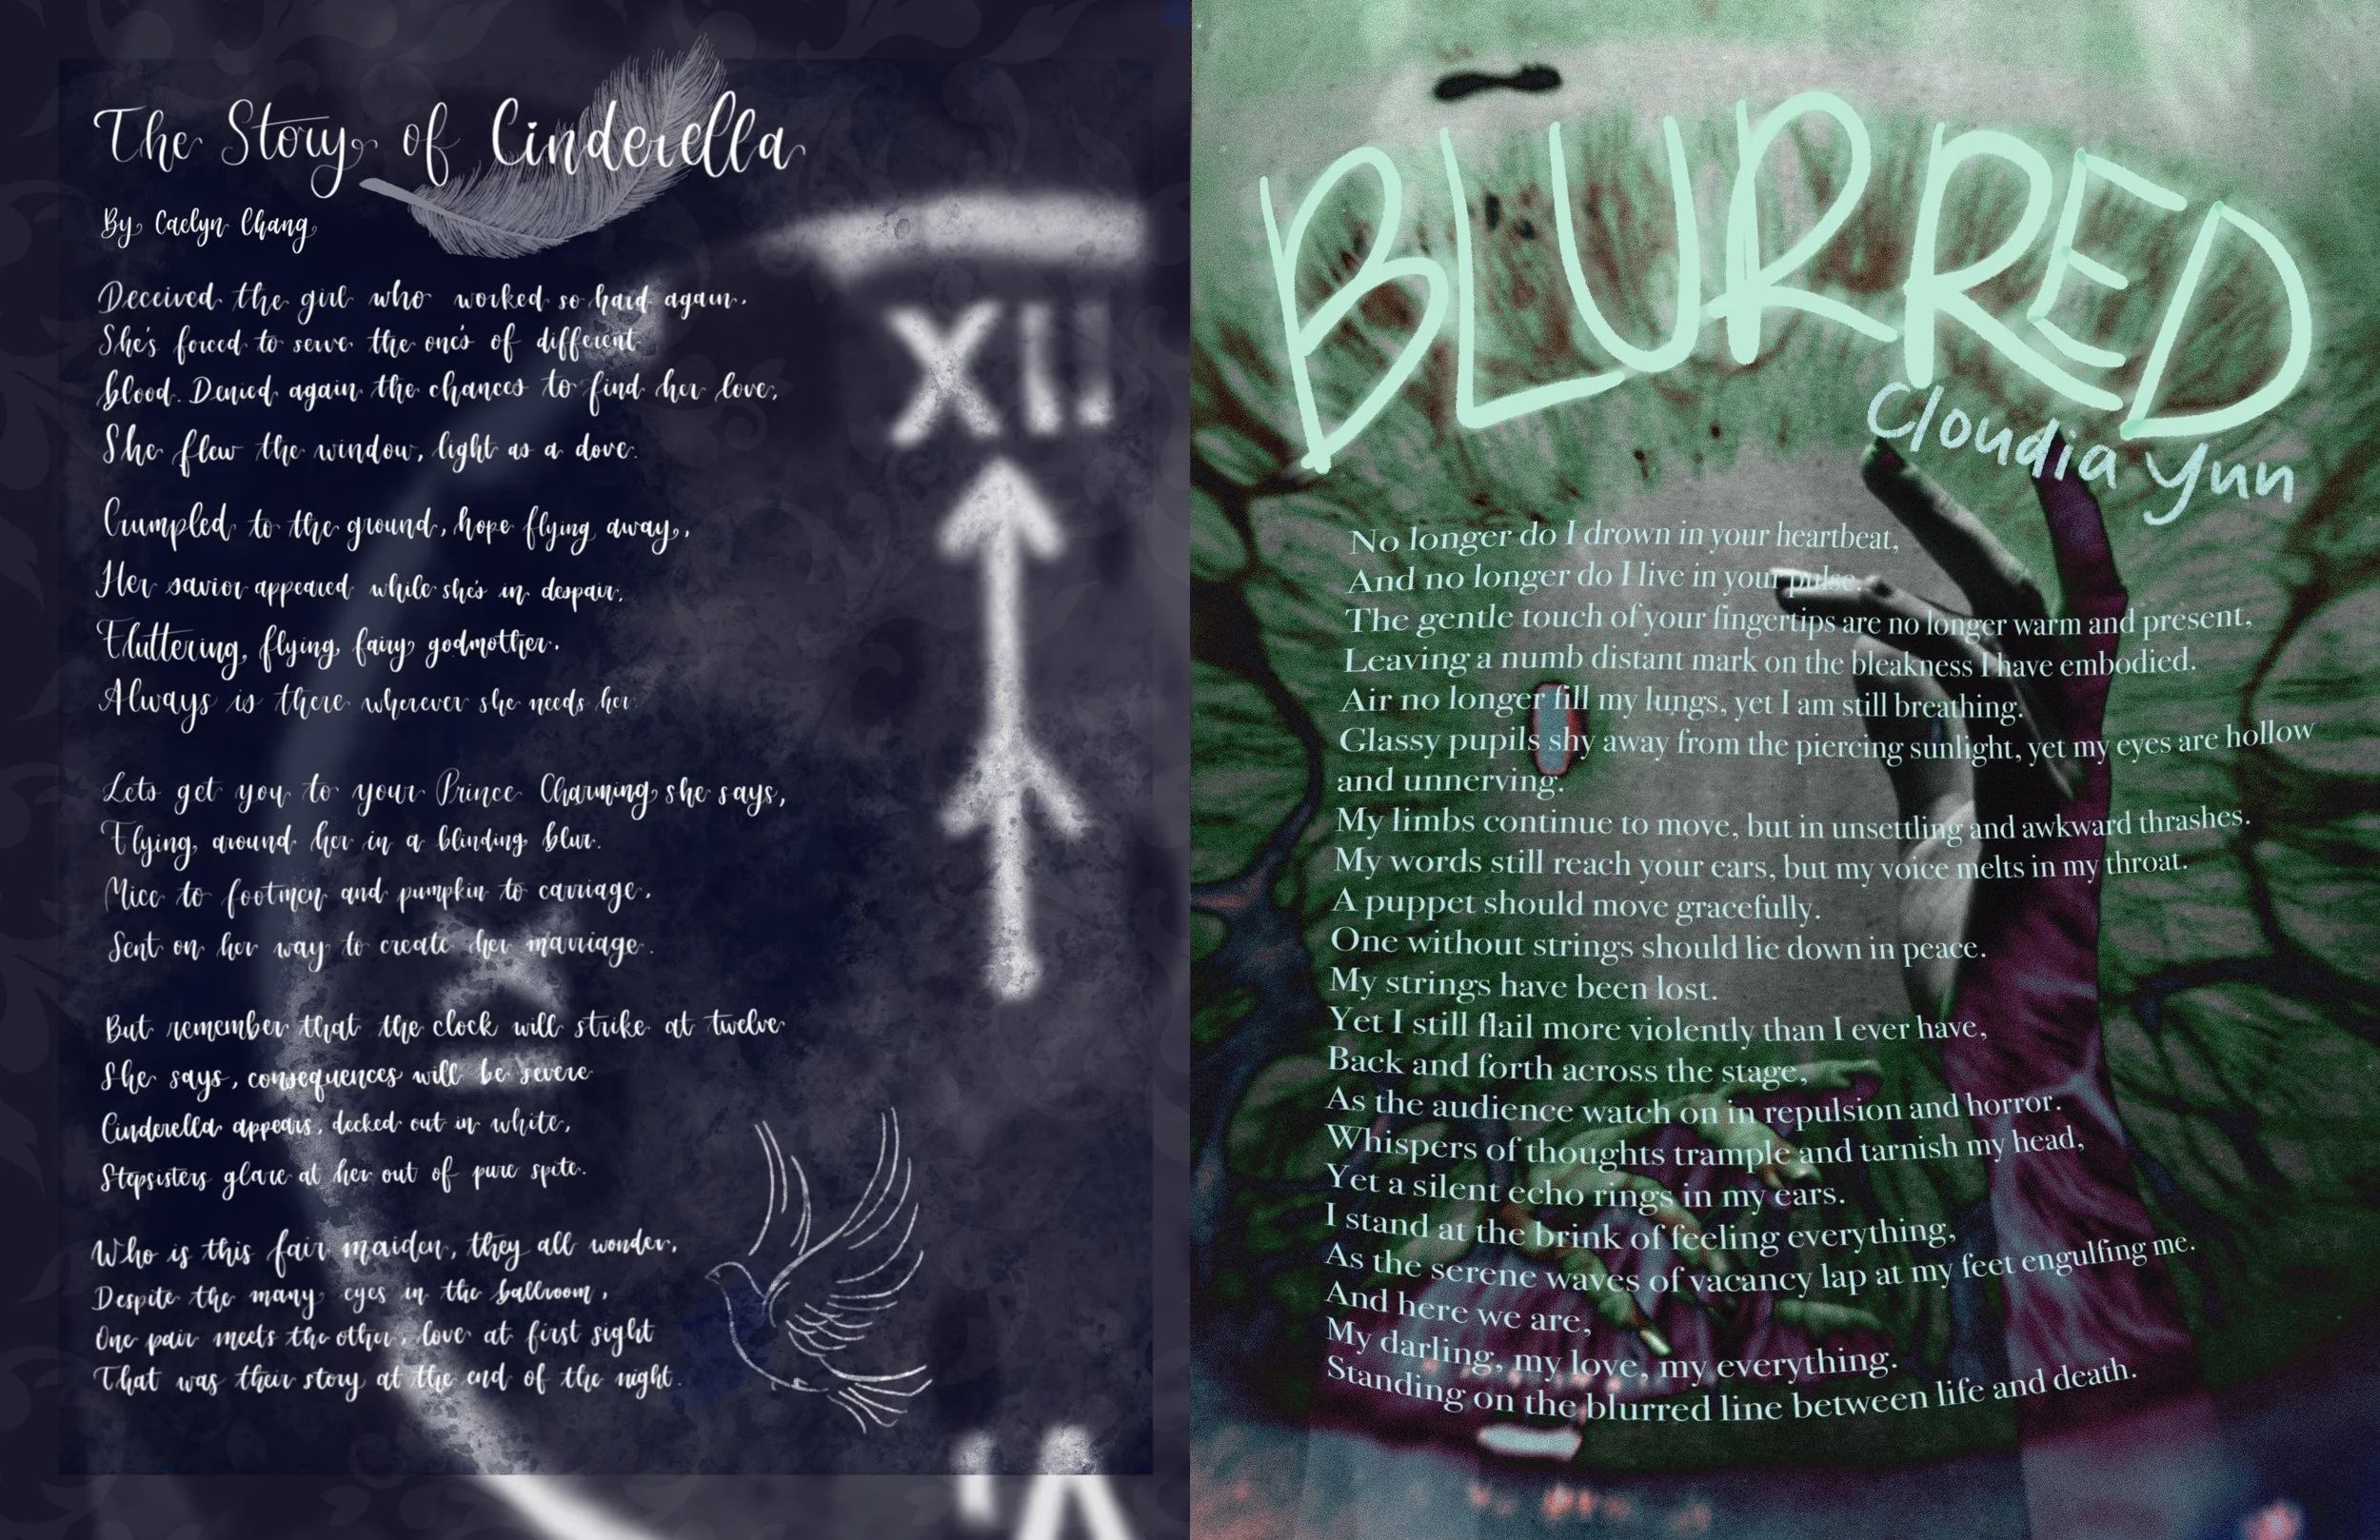 The Story of Cinderella
By Caelyn Chang
Deceived the girl who worked so hard again.
She's forced to serve the one's of different
blood. Denied again the chances to find her love,
She flew the window, light as a dove.
Crumpled to the ground, hope flying away,
Her savior appeared while she's in despair,
Fluttering, flying, fairy godmother.
Always is there wherever she needs her.
Lets get you to your Prince Charming she says,
Flying around her in a blinding blur.
Mice to footmen and pumpkin to carriage,
Sent on her way to create her marriage.
But remember that the clock will strike at twelve
She says, consequences will be severe
Cinderella appears, decked out in white,
Stepsisters glare at her out of pure spite.
Who is this fair maiden, they all wonder,
Despite the many eyes in the ballroom,
One pair meets the other, love at first sight
That was their story at the end of the night.
XII
BLURRED
Cloudia Yun
No longer do I drown in your heartbeat,
And no longer do I live in your pulse.
The gentle touch of your fingertips are no longer warm and present,
Leaving a numb distant mark on the bleakness I have embodied.
Air no longer fill my lungs, yet I am still breathing.
Glassy pupils shy away from the piercing sunlight, yet my eyes are hollow
and unnerving.
My limbs continue to move, but in unsettling and awkward thrashes.
My words still reach your ears, but my voice melts in my throat.
A puppet should move gracefully.
One without strings should lie down in peace.
My strings have been lost.
Yet I still flail more violently than I ever have,
Back and forth across the stage,
As the audience watch on in repulsion and horror.
Whispers of thoughts trample and tarnish my head,
Yet a silent echo rings in my ears.
I stand at the brink of feeling everything,
As the serene waves of vacancy lap at my feet engulfing me.
And here we are,
My darling, my love, my everything.
Standing on the blurred line between life and death.